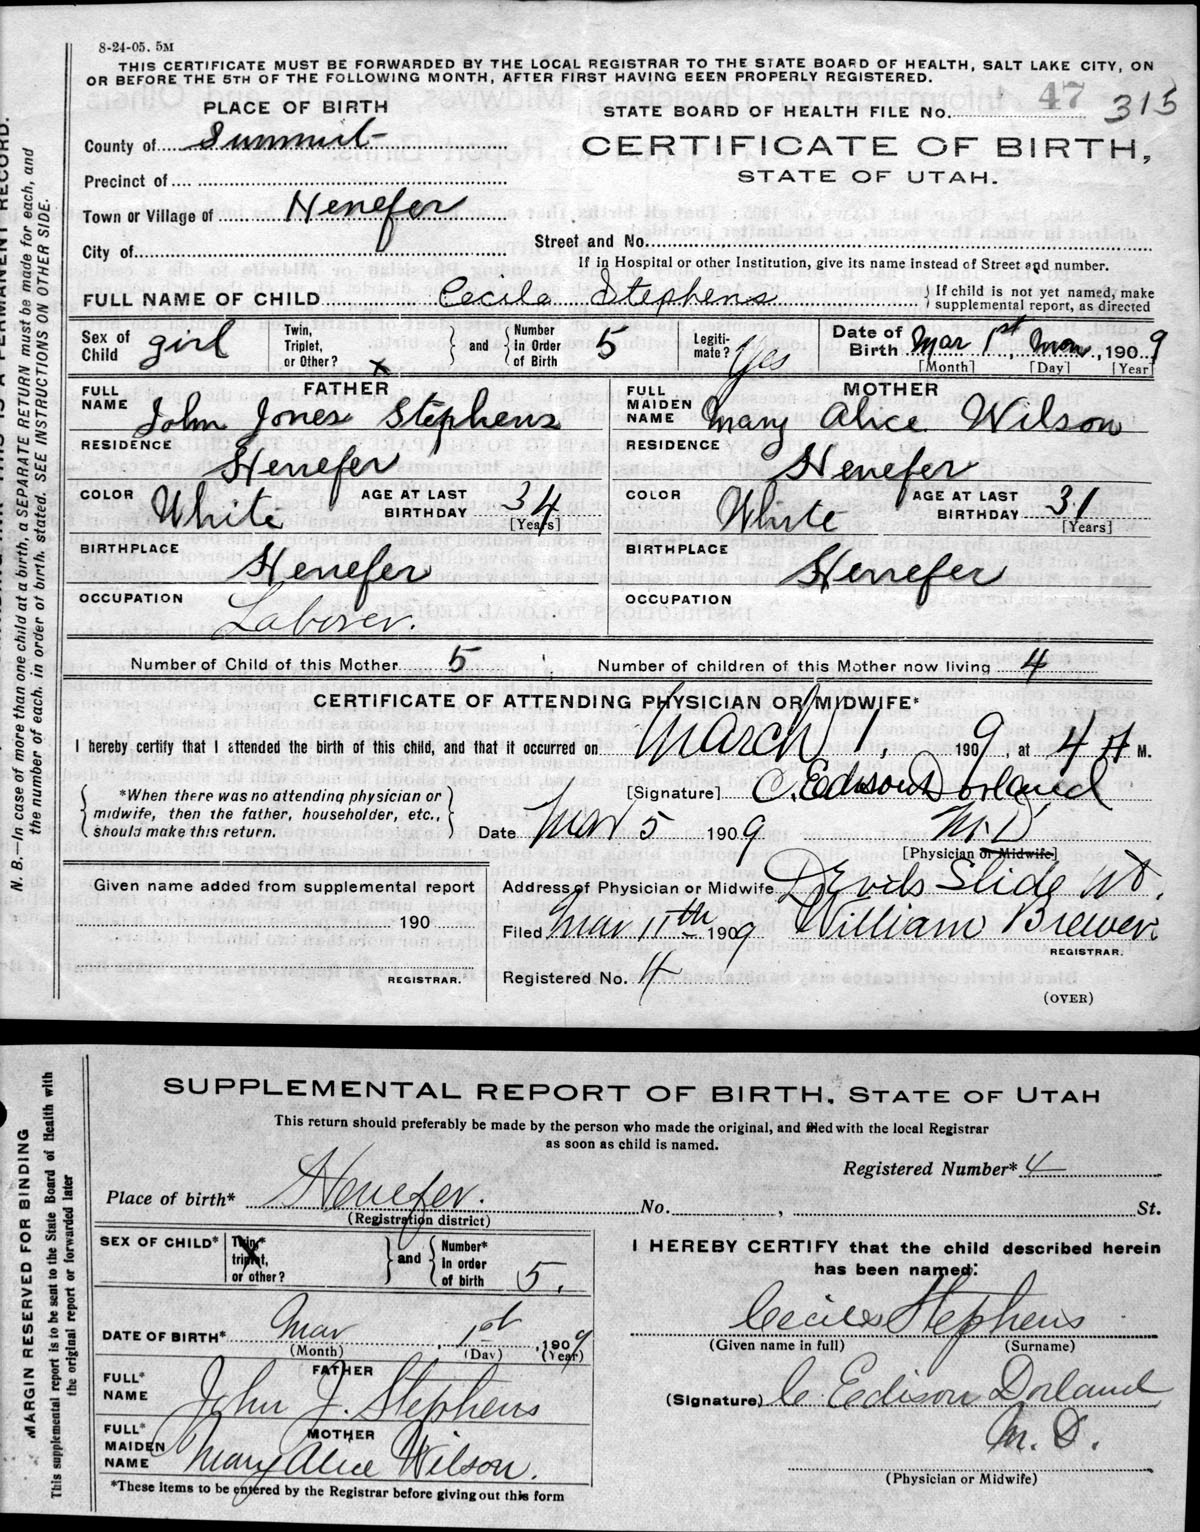 8-24-05. 5M
THIS CERTIFICATE MUST BE FORWARDED BY THE LOCAL REGISTRAR TO THE STATE BOARD OF HEALTH, SALT LAKE CITY, ON
OR BEFORE THE 5TH OF THE FOLLOWING MONTH, AFTER FIRST HAVING BEEN PROPERLY REGISTERED.
PLACE OF BIRTH
STATE BOARD OF HEALTH FILE No. 47 315
County of Summit
CERTIFICATE OF BIRTH,
STATE OF UTAH.
Precinct of
Town or Village of Henefer
City of
Street and No.
If in Hospital or other Institution, give its name instead of Street and number.
FULL NAME OF CHILD Cecila Stephens { If child is not yet named, make supplemental report, as directed
Sex of Child girl Twin, Triplet, or Other? x } and { Number in Order of Birth 5 Legitimate? Yes Date of Birth Mar 1st, Mon, 1909
[Month] [Day] [Year]
FATHER
FULL NAME John Jones Stephens
RESIDENCE Henefer
COLOR White AGE AT LAST BIRTHDAY 34 [Years]
BIRTHPLACE Henefer
OCCUPATION Laborer.
MOTHER
FULL MAIDEN NAME Mary Alice Wilson
RESIDENCE Henefer
COLOR White AGE AT LAST BIRTHDAY 31 [Years]
BIRTHPLACE Henefer
OCCUPATION
Number of Child of this Mother 5 Number of children of this Mother now living 4
CERTIFICATE OF ATTENDING PHYSICIAN OR MIDWIFE*
I hereby certify that I attended the birth of this child, and that it occurred on March 1, 1909, at 4 A M.
{ *When there was no attending physician or midwife, then the father, householder, etc., should make this return. }
[Signature] C. Edison Dorland
Date Mar 5 1909 M.D.
[Physician or Midwife]
Given name added from supplemental report
190
REGISTRAR.
Address of Physician or Midwife Devils Slide Ut.
Filed Mar 11th 1909 William Brewer
REGISTRAR.
Registered No. 4
(OVER)
N. B.—In case of more than one child at a birth, a SEPARATE RETURN must be made for each, and
the number of each, in order of birth, stated. SEE INSTRUCTIONS ON OTHER SIDE.
THIS IS A PERMANENT RECORD.
SUPPLEMENTAL REPORT OF BIRTH, STATE OF UTAH
This return should preferably be made by the person who made the original, and filed with the local Registrar
as soon as child is named.
Registered Number* 4
Place of birth* Henefer. No. , St.
(Registration district)
SEX OF CHILD* Twin,* triplet, or other? } and { Number* in order of birth 5.
DATE OF BIRTH* Mar 1st, 1909
(Month) (Day) (Year)
FATHER
FULL* NAME John J. Stephens
MOTHER
FULL* MAIDEN NAME Mary Alice Wilson.
*These items to be entered by the Registrar before giving out this form
I HEREBY CERTIFY that the child described herein
has been named:
Stephens
(Given name in full) (Surname)
(Signature) C. Edison Dorland
M. D.
(Physician or Midwife)
MARGIN RESERVED FOR BINDING
This supplemental report is to be sent to the State Board of Health with
the original report or forwarded later